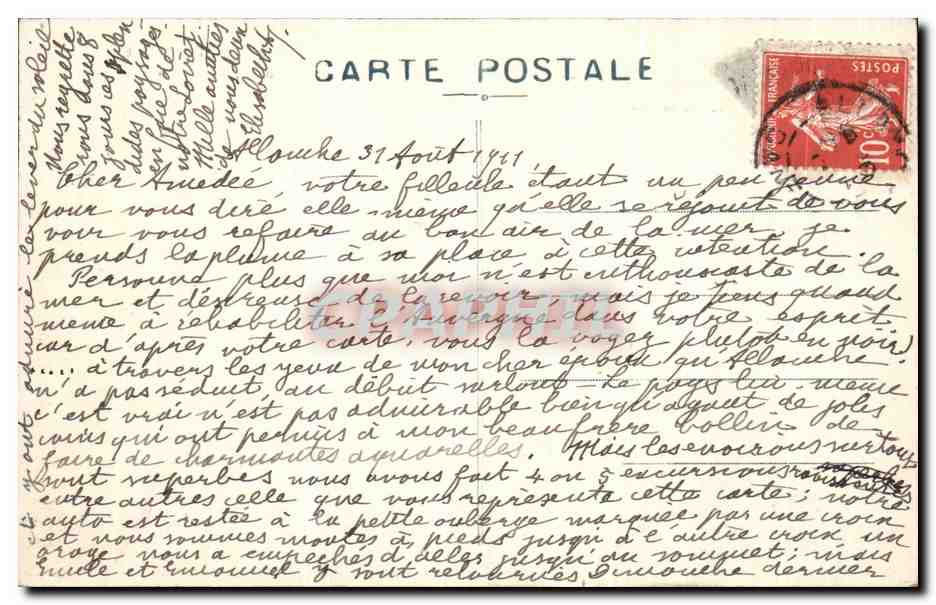 CARTE POSTALE
POSTES
10
Allanche 31 Août 1911,
Cher Amédée, votre filleule étant un peu jeune
pour vous dire elle-même qu'elle se réjouit de vous
voir vous refaire au bon air de la mer, je
prends la plume à sa place à cette intention.
Personne plus que moi n'est enthousiaste de la
mer et désireuse de la revoir, mais je tiens quand
même à réhabiliter l'Auvergne dans votre esprit
car d'après votre carte, vous la voyez plutôt en noir
..... à travers les yeux de mon cher époux qu'Allanche
n'a pas séduit, au début surtout - Le pays lui-même
c'est vrai n'est pas admirable bien qu'ayant de jolis
coins qui ont permis à mon beau frère Collin de
faire de charmantes aquarelles. Mais les environs surtout
sont superbes nous avons fait 4 ou 5 excursions
entre autres celle que vous représente cette carte; notre
auto est restée à la petite auberge marquée par une croix
et nous sommes montés à pieds jusqu'à l'autre croix un
orage nous a empêchés d'aller jusqu'au sommet; mais
Emile et Emmanuel y sont retournés Dimanche dernier
et y ont admiré le lever du soleil
Nous regrette
rons dans 8
jours ces splen
dides paysages
en vue de
notre
Mille amitiés
de nous deux
Elisabeth.
CPAPHIL